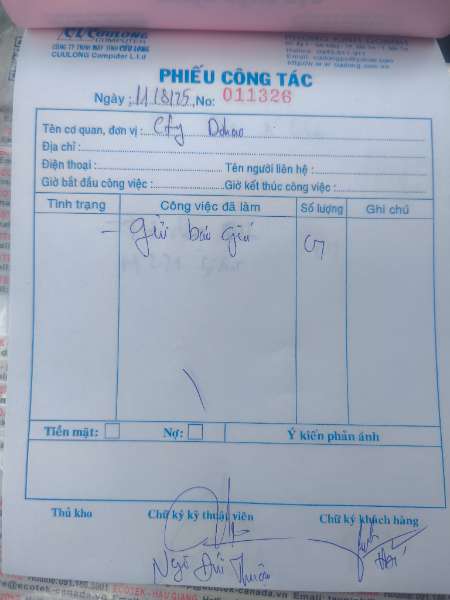 CUULONG
COMPUTER
CÔNG TY TNHH MÁY TÍNH CỬU LONG
CUULONG Computer L.t.d
PHIẾU CÔNG TÁC
Ngày : 11/8/25 No: 011326
Tên cơ quan, đơn vị : Cty
Địa chỉ :
Điện thoại : Tên người liên hệ :
Giờ bắt đầu công việc : Giờ kết thúc công việc :
Tình trạng Công việc đã làm Số lượng Ghi chú
- Gửi báo giá 01
Tiền mặt: Nợ: Ý kiến phản ánh
Thủ kho Chữ ký kỹ thuật viên Chữ ký khách hàng
Ngô Đức
ECOTEK - HAU GIANG